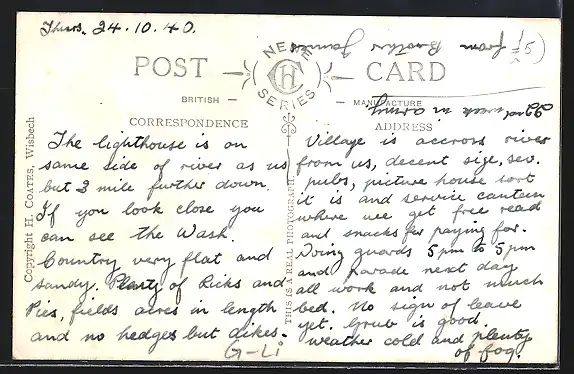 Thurs. 24.10.40.
from Brother James
POST CARD
NENE
CH
SERIES
BRITISH MANUFACTURE
22nd week in army
CORRESPONDENCE
ADDRESS
The lighthouse is on
same side of river as us
but 3 mile further down.
If you look close you
can see the Wash.
Country very flat and
sandy. Plenty of Ricks and
Pies, fields acres in length
and no hedges but dikes.
G-Li
Village is accross river
from us, decent size, sev.
pubs, picture house sort
it is and service canteen
where we get free read
and snacks for paying for.
Doing guards 5pm to 5pm
and parade next day
all work and not much
bed. No sign of leave
yet. Grub is good.
weather cold and plenty
of fog.
Copyright H. COATES, Wisbech
THIS IS A REAL PHOTOGRAPH